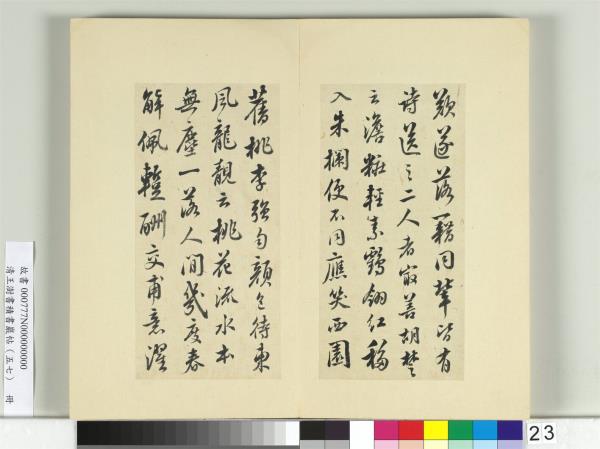 歎遂落籍同輩皆有
詩送之二人者最善胡楚
云澹粧輕素鶴翎紅移
入朱欄便不同應笑西園
舊桃李強勻顏色待東
風龍靚云桃花流水本
無塵一落人間幾度春
解佩蹔酬交甫意濯
故書 000777N000000000
清王澍書積書巖帖(五七) 冊
23